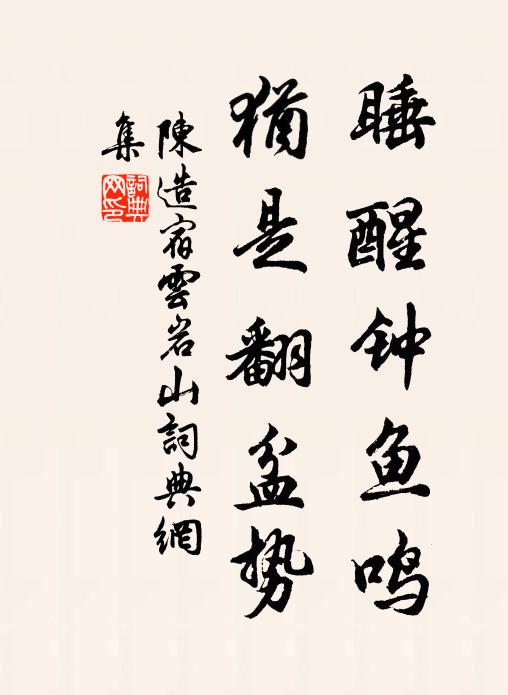 睡醒钟鱼鸣
犹是翻盆势
陳造宿雲岩山詞典網
集
詞典網印